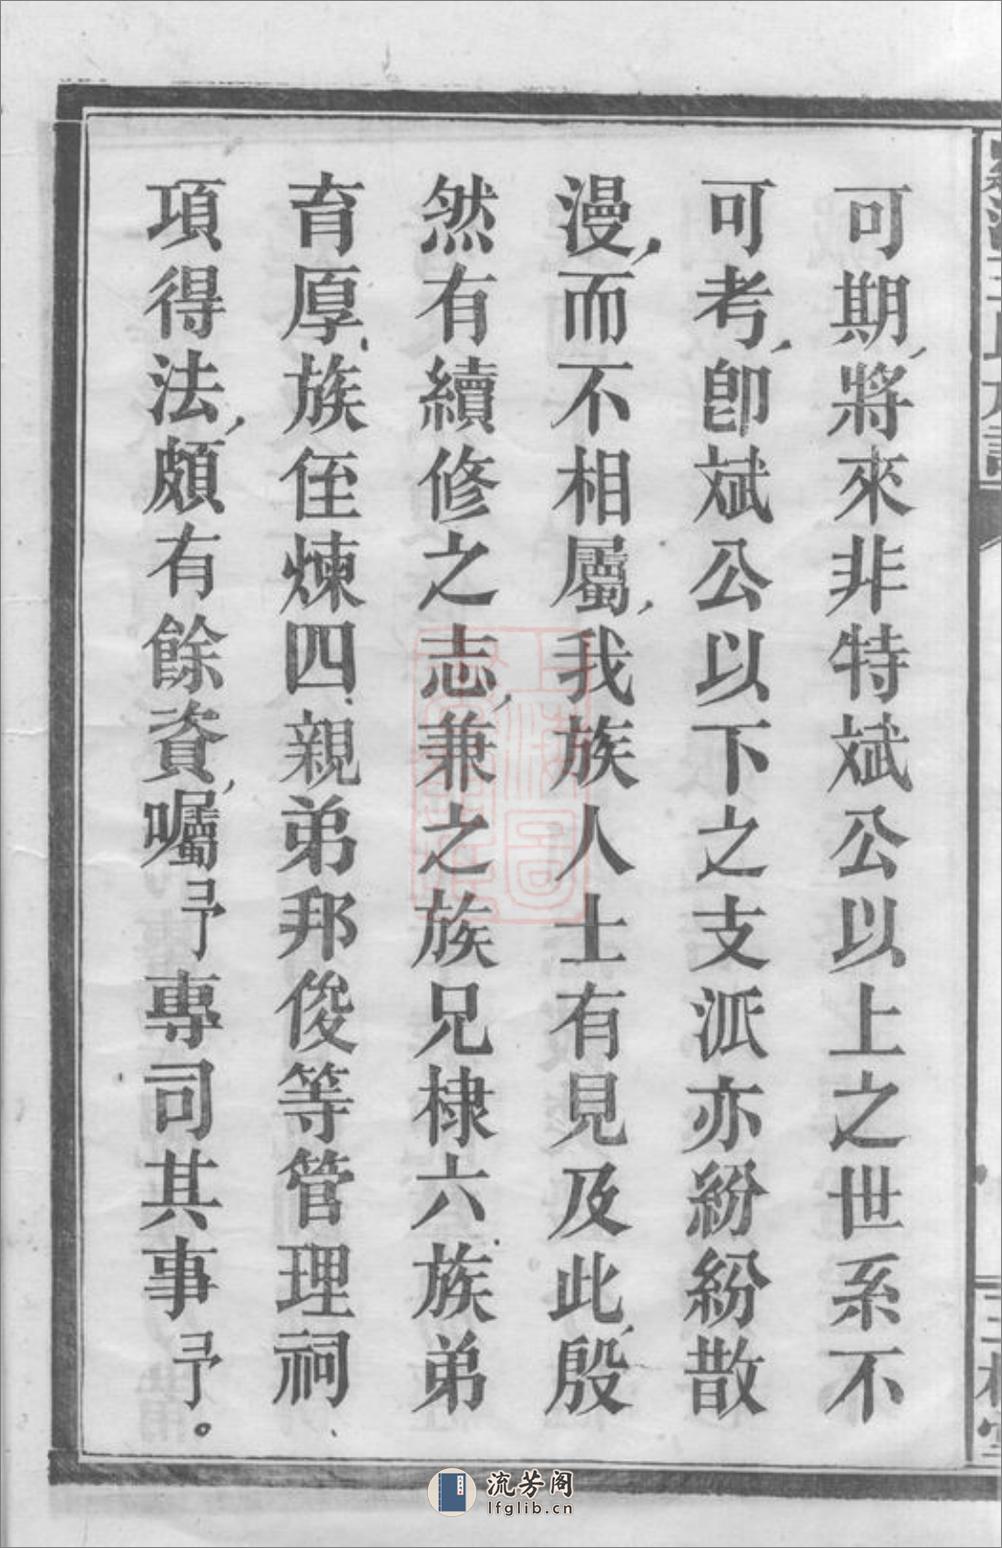 可期，將來非特斌公以上之世系不
可考，卽斌公以下之支派亦紛紛散
漫，而不相屬，我族人士有見及此，殷
然有續修之志，兼之族兄棣六、族弟
育厚、族侄煉四、親弟邦俊等管理祠
項得法，頗有餘資，囑予專司其事予。
流芳阁
lfglib.cn